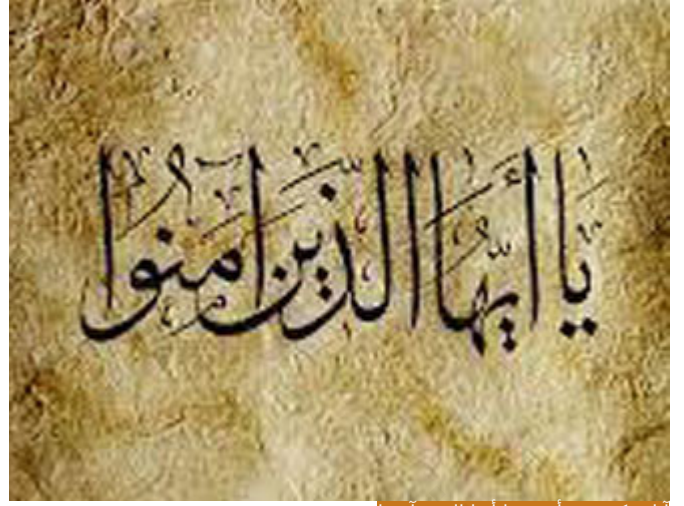 يا أيها الذين آمنوا